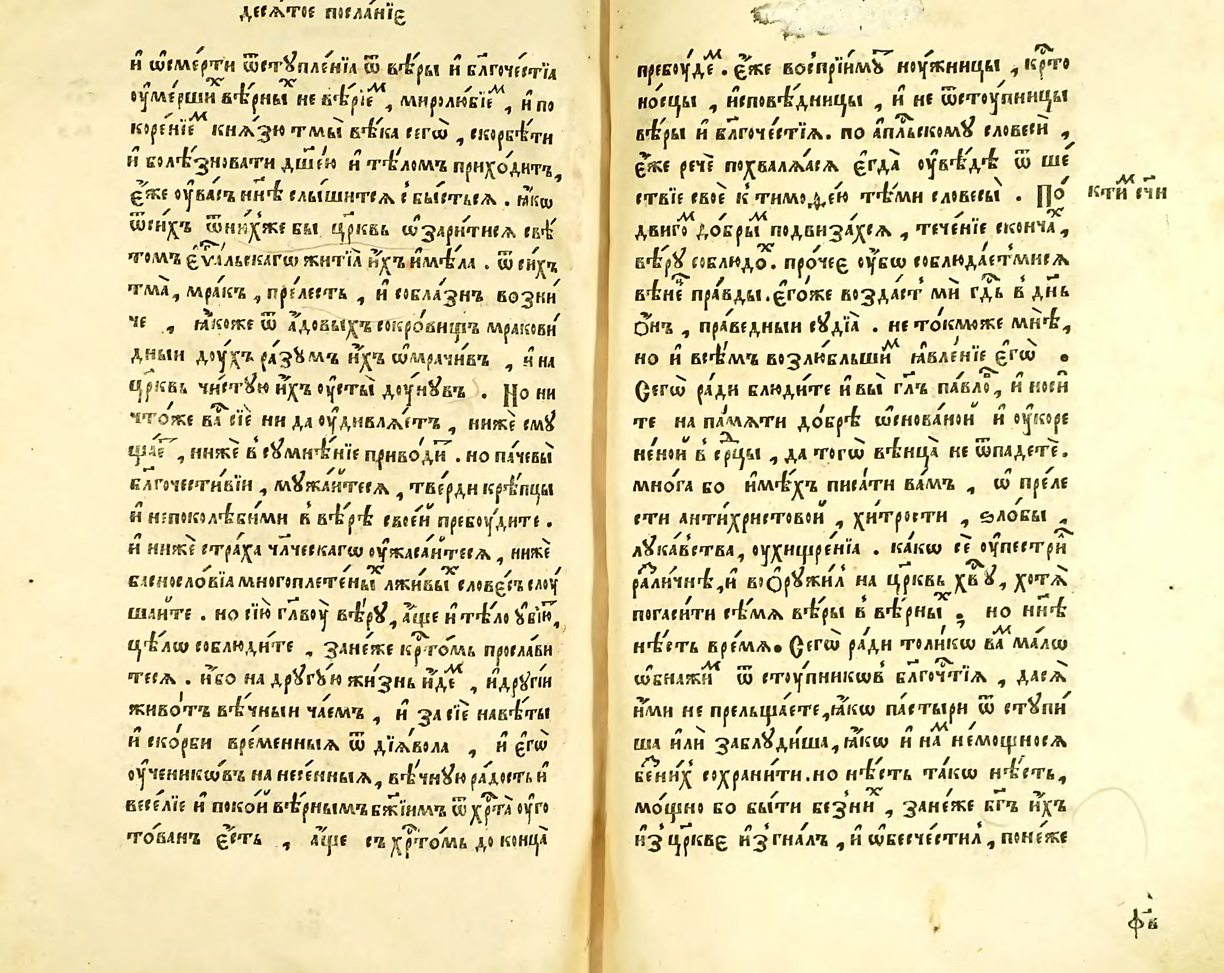 десѧ́тое посла́нїе
и҆ ѡ҆сме́рти ѿстꙋпле́нїѧ ѿ вѣ́ры и҆ бл҃гоче́стїѧ
оу҆ме́рши́ⷯ вѣ́рныⷯ не вѣ́рїеⷨ , миролю́бїеⷨ , и҆ по
коре́нїеⷨ кнѧ́зю тмы̀ вѣ́ка сегѡ̀ , скорбѣ́ти
и҆ болѣ́зновати дш҃е́ю и҆ тѣ́ломъ прихо́дитъ,
є҆́же оу҆ва́съ нн҃ѣ слы́шитсѧ с̾ бы́стьсѧ . ꙗ҆́кѡ
ѿси́хъ ѿни́хже бы цр҃квь ѡ҆зари́тисѧ свѣ́
томъ є҆ѵⷢ҇а́льскагѡ житїѧ̀ и҆́хъ и҆мѣ́ла . ѿ си́хъ
тма̀, мра́къ , пре́лесть , и҆ собла́знъ возни́
че , ꙗ҆́коже ѿ а҆́довыхъ сокро́вищъ мракови́
дныи дꙋ́хъ ра́зꙋмъ и҆́хъ ѡ҆мрачи́въ , и҆ на
цр҃квь чи́стꙋю и҆́хъ оу҆сты̀ доу́нꙋвъ . Но ни
что́же ва́ⷭ сїѐ ни да оу҆дивлѧ́етъ , нижѐ смꙋ
ща́еⷮ , нижѐ в̾ сꙋмнѣ́нїе приво́диⷮ . но па́чевы̀
бл҃гочести́вїи , мꙋжа́йтесѧ , тве́рди крѣ́пцы
и҆ непоколѣ́бими в̾ вѣ́рѣ свое́й пребоу́дите .
и҆ нижѐ стра́ха чл҃ческагѡ оу҆жаса́йтесѧ , нижѐ
басносло́вїѧ многоплете́ныⷯ лжи́выⷯ слове́съ слоу́
шайте . но сїю̀ гл҃воу̀ вѣ́рꙋ , а҆́ще и҆ тѣ́ло ᲂу҆бїю́ⷮ ,
цѣ́лѡ соблюди́те , зане́же кр҃то́мъ просла́ви
тесѧ . и҆́бо на дрꙋгꙋ́ю жи́знь и҆́деⷨ , и҆ дрꙋгі́и
живо́тъ вѣ́чныи ча́емъ , и҆ за сїѐ навѣ́ты
и҆ ско́рби вре́менныѧ ѿ дїѧ́вола , и҆ є҆гѡ̀
оу҆ченикѡ́въ на несе́нныѧ , вѣ́чнꙋю ра́дость и҆
весе́лїе и҆ поко́й вѣ́рнымъ бж҃їимъ ѿ хрⷭ҇та̀ оу҆го
то́ванъ є҆́сть , а҆́ще съ хрⷭ҇то́мъ до конца̀
пребоу́деⷨ . є҆́же воспрїи́мꙋⷮ ноу́жницы , кр҃то
но́сцы , и҆сповѣ́дницы , и҆ не ѿстоу́пницы
вѣ́ры и҆ бл҃гоче́стїѧ . по а҆пⷭ҇льскомꙋ словесѝ ,
є҆́же речѐ похвалѧ́ѧсѧ є҆гда̀ оу҆вѣ́дѣ ѿ ше́
ствїе своѐ к̾ тимоѳе́ю тѣ́ми словесы̀ . По́
кти́ⷨ сч҃и
двигоⷨ до́брыⷨ подвиза́хсѧ , тече́нїе сконча́ⷯ ,
вѣ́рꙋ соблюдо́ⷯ . про́чее оу҆́бѡ соблюда́етмисѧ
вѣне́ⷰ пра́вды . є҆го́же возда́ст̾ ми гдⷭ҇ь в̾ дн҃ь
ѻ҆́нъ , пра́ведныи сꙋдїѧ̀ . не то́кможе мнѣ̀ ,
но и҆ всѣ́мъ возлю́бльшиⷨ ꙗ҆вле́нїе є҆гѡ̀ .
Сегѡ̀ ра́ди блюди́те и҆ вы̀ гл҃ъ па́влоⷡ , и҆ носи́
те на па́мѧти до́брѣ ѡ҆снова́ной и҆ оу҆коре
не́ной в̾ срⷣцы , да тогѡ̀ вѣнца̀ не ѿпадетѐ .
мно́га бо и҆мѣ́хъ писа́ти ва́мъ , ѡ҆ пре́ле
сти антихри́стовой , хи́трости , ѕло́бы ,
лꙋка́вства , оухищре́нїѧ . ка́кѡ сѐ оу҆пестри́ⷧ
ра́ⷥли́чнѣ , и҆ воѻрꙋжи́л̾ на цр҃квь хв҃ꙋ , хотѧ̀
погаси́ти сѣ́мѧ вѣ́ры в̾ вѣ́рныⷯ , но нн҃ѣ
нѣ́сть вре́мѧ . Сегѡ̀ ра́ди толи́кѡ ва́ⷨ ма́лѡ
ѡ҆бнажи́ⷨ ѿ стоу́пникѡв̾ бл҃гочⷭ҇тїѧ , дасѧ̀
и҆́ми не прельща́ете , ꙗ҆́кѡ па́стыри ѿ стꙋпи́
ша и҆лѝ заблꙋди́ша , ꙗ҆́кѡ и҆ на́ⷨ немо́щносѧ
бе́ни́ⷯ сохрани́ти . но нѣ́сть та́кѡ нѣ́сть ,
мо́щно бо бы́ти безни́ⷯ , зане́же бг҃ъ и҆́хъ
и҆з̾ цр҃кве и҆згна́лъ , и҆ ѡ҆бесче́стил̾ , поне́же
ф҃в